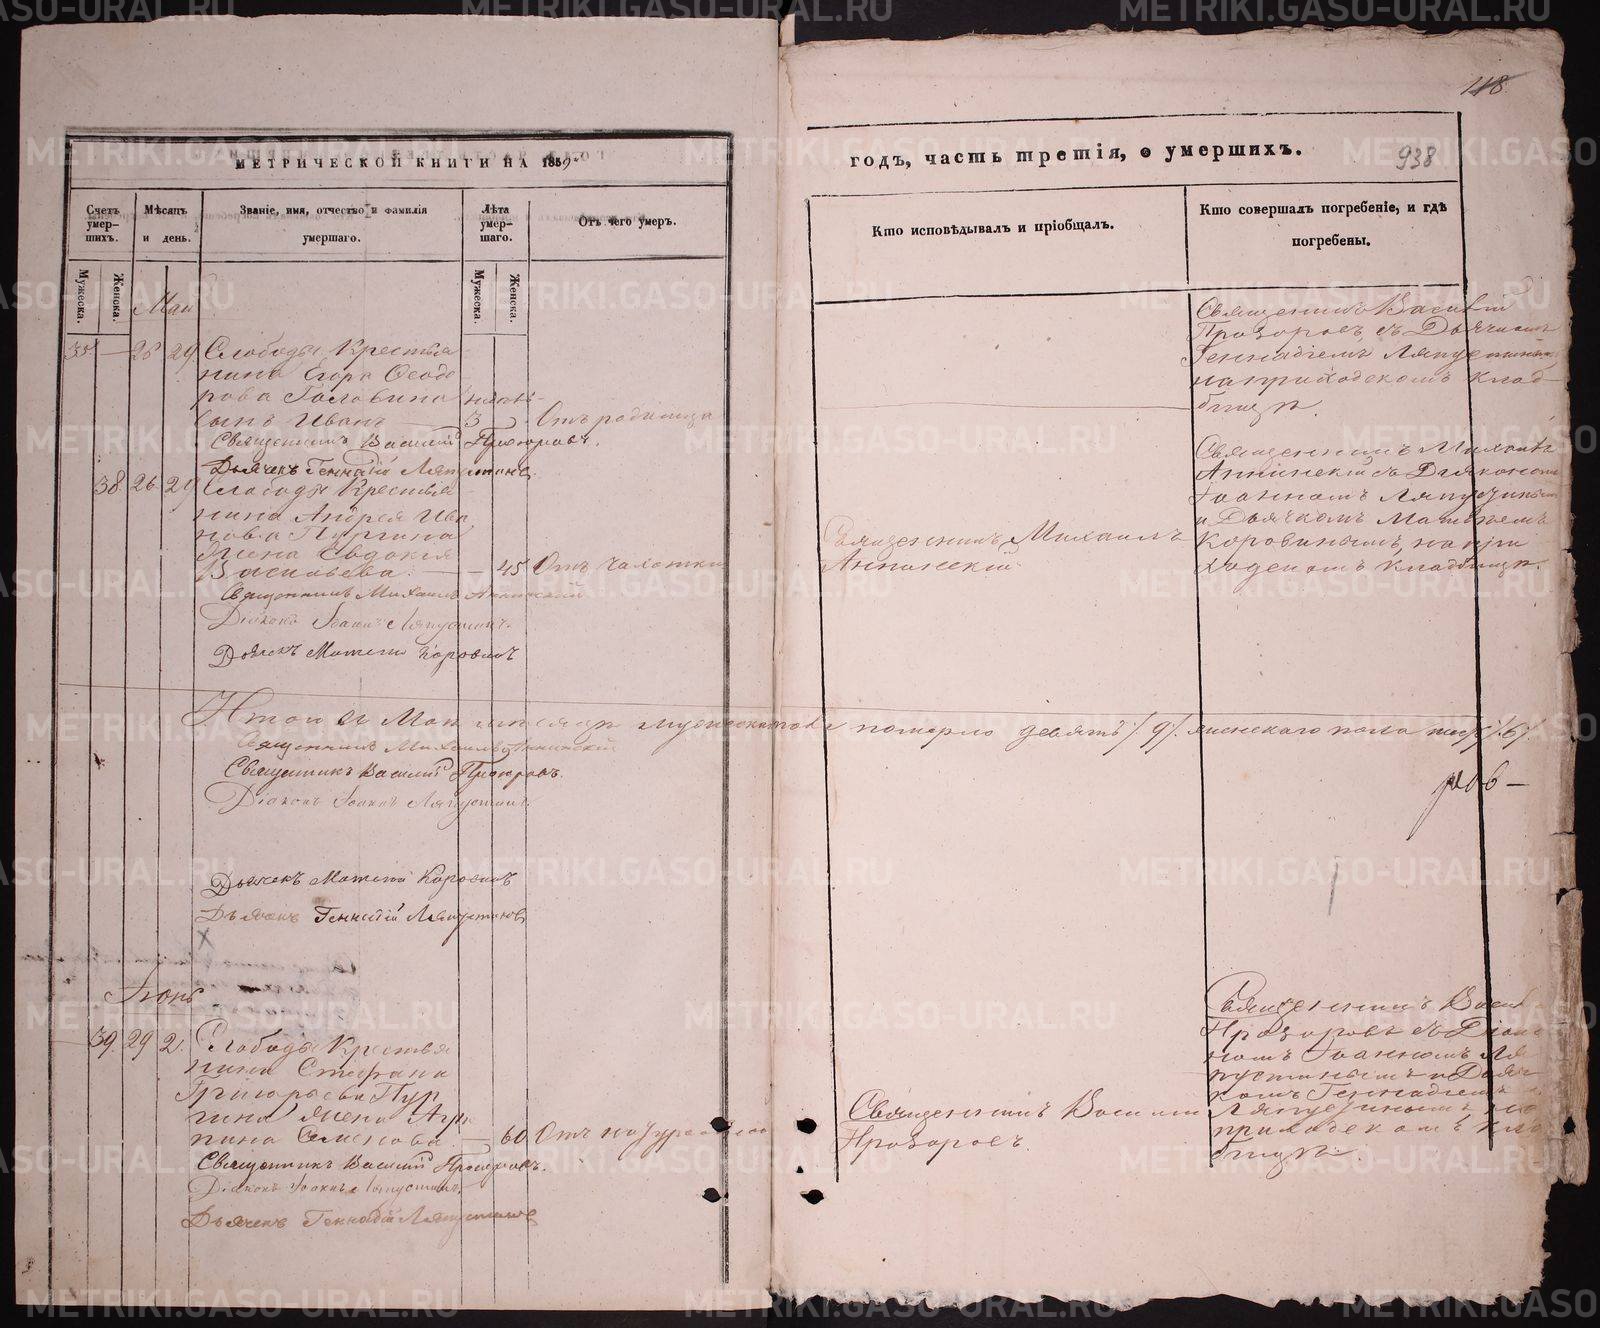 МЕТРИЧЕСКОЙ КНИГИ НА 1859
Счетъ умер-шихъ.
Мѣсяцъ и день.
Званіе, имя, отчество и фамилія умершаго.
Лѣта умер-шаго.
Отъ чего умеръ.
Мужеска.
Женска.
Мужеска.
Женска.
Май
35 — 26 29 Слободы Крестья
нина Егора Ѳеодо
рова Головина
сынъ Иванъ 3 Отъ родимца
Священникъ Василій Прозоровъ.
Дьячекъ Геннадій Ляпустинъ.
38. 26 29 Слободы Крестья
нина Андрея Ива
нова Пургина
жена Евдокія
Васильева. — 45 Отъ чахотки
Священникъ Михаилъ Аннинскій
Діаконъ Іоаннъ Ляпустинъ.
Дьячекъ Матѳей Коровинъ
Итого въ Маѣ мѣсяцѣ мужеска пола
Священникъ Михаилъ Аннинскій
Священникъ Василій Прозоровъ.
Діаконъ Іоаннъ Ляпустинъ
Дьячекъ Матѳей Коровинъ
Дьячекъ Геннадій Ляпустинъ
Іюнь
39. 29 2. Слободы Крестья
нина Стефана
Григорьева Пур
гина жена Агри
пина Семенова. — 60 Отъ
Священникъ Василій Прозоровъ.
Діаконъ Іоаннъ Ляпустинъ.
Дьячекъ Геннадій Ляпустинъ
118
годъ, часть третія, о умершихъ.
938
Кто исповѣдывалъ и пріобщалъ.
Кто совершалъ погребеніе, и гдѣ погребены.
Священникъ Василій
Прозоровъ съ Дьячкомъ
Геннадіемъ Ляпустинымъ
на приходскомъ клад-
бищѣ.
Священникъ Михаилъ
Аннинскій
Священникъ Михаилъ
Аннинскій съ Діакономъ
Іоанномъ Ляпустинымъ
и Дьячкомъ Матѳеемъ
Коровинымъ, на при
ходскомъ кладбищѣ.
померло девять /9/. женскаго пола шесть /6/.
Священникъ Василій
Прозоровъ.
Священникъ Васил
Прозоровъ съ Діако
номъ Іоанномъ Ля
пустинымъ и Дьяч
комъ Геннадіемъ
Ляпустинымъ, на
приходскомъ кла
бищѣ.
METRIKI.GASO-URAL.RU